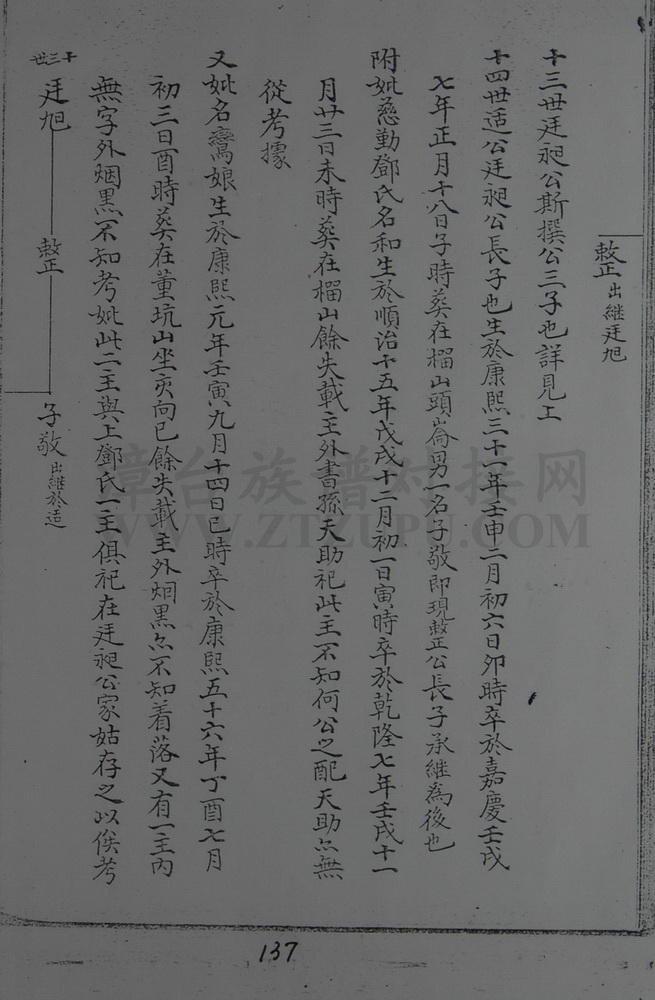 敕正 出継廷旭
十三世廷昶公斯撰公三子也詳見工
十四世适公廷昶公長子也生於康熙三十一年壬申二月初六日夘時卒於嘉慶壬戌
七年正月十八日子時葬在榴山頭崙男一名子敬即現敕正公長子承継為後也
附妣慈勤鄧氏名和生於順治十五年戊戌十二月初一日寅時卒於乾隆七年壬戌十一
月廿三日未時葬在榴山餘失載主外書孫天助祀此主不知何公之配天助亦無
從考據
又妣名鸞娘生於康熙元年壬寅九月十四日巳時卒於康熙五十六年丁酉七月
初三日酉時葬在董坑山坐亥向巳餘失載主外烟黒亦不知着落又有一主內
無字外烟黒不知考妣此二主與上鄧氏一主俱祀在廷昶公家姑存之以俟考
十三世
廷旭 敕正 子敬 出継於适
漳台族譜对接网
WWW.ZTZUPU.COM
137